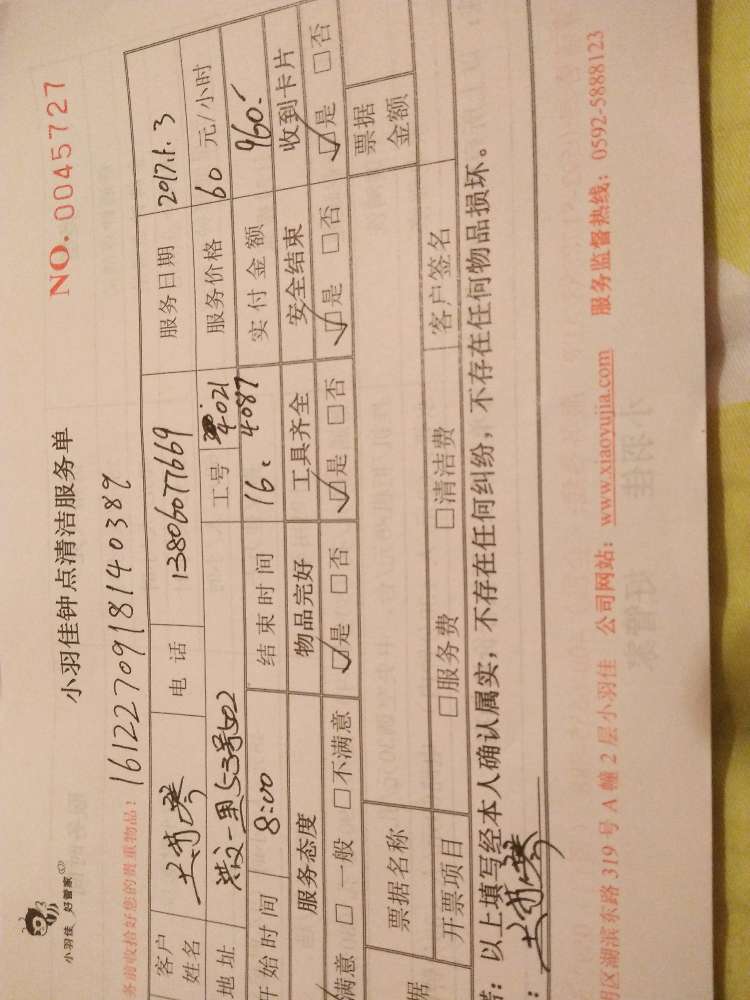 小羽佳 好管家
小羽佳钟点清洁服务单
NO. 0045727
务前收拾好您的贵重物品: 1612270918140389
客户姓名 电话 13806077669 服务日期 2017.1.3
地址 一里53号502 工号 4021 4087 服务价格 60 元/小时
开始时间 8:00 结束时间 16: 实付金额 960.
服务态度 物品完好 工具齐全 安全结束 收到卡片
满意 □ 一般 □不满意 ☑是 □否 ☑是 □否 ☑是 □否 ☑是 □否
据 票据名称 票据金额
开票项目 □服务费 □清洁费 客户签名
: 以上填写经本人确认属实, 不存在任何纠纷, 不存在任何物品损坏。
:
明区湖滨东路 319 号 A 幢 2 层小羽佳 公司网站: www.xiaoyujia.com 服务监督热线: 0592-5888123